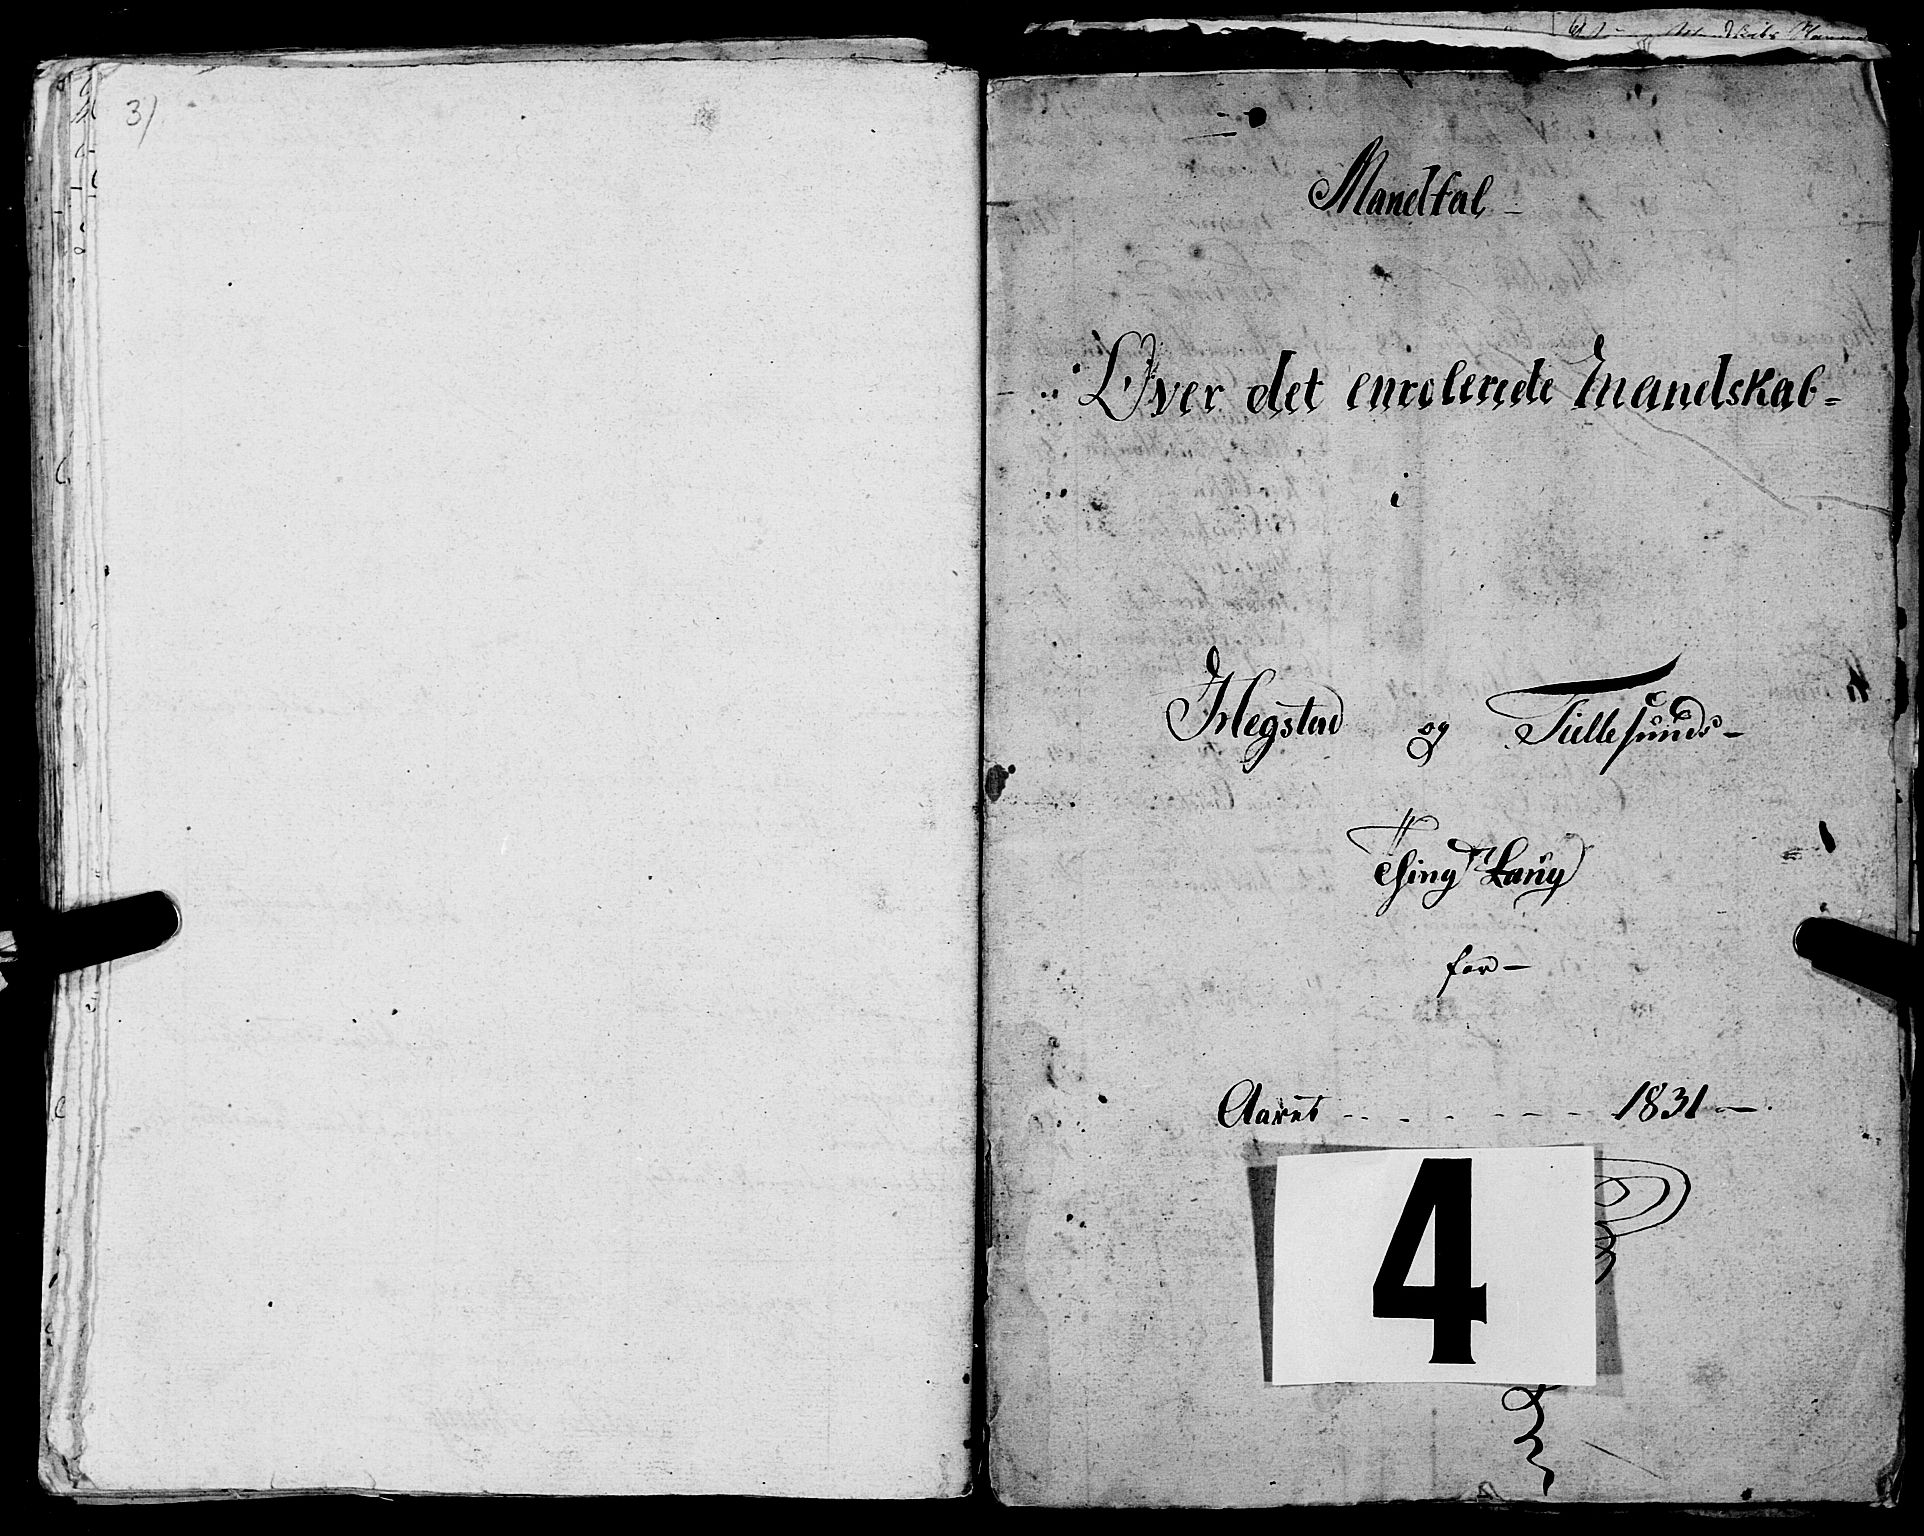 3)
Mandtal -
Over det enrolerede Mandskab -
i
Megstad og Tillesunds -
Thing Laug
for -
Aaret - - - - - - - 1831 -
4